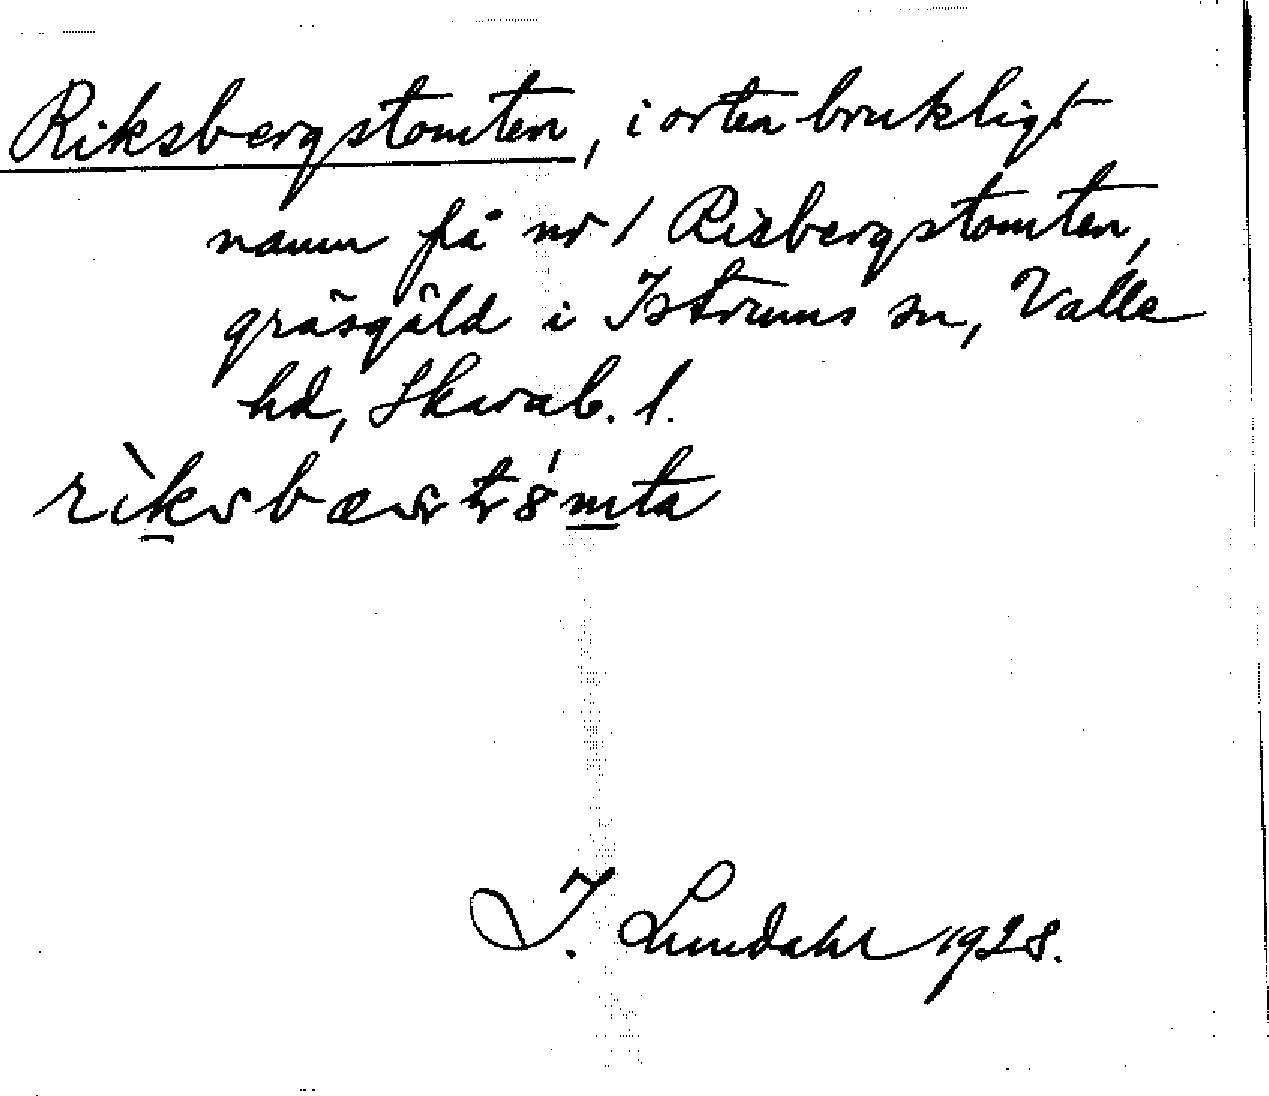 Riksbergstomten, i orten brukligt
namn på nr 1 Risbergstomten,
gräsgäld i Istrums sn, Valle
hd, Skarab. l.
I. Lundahl 1928.